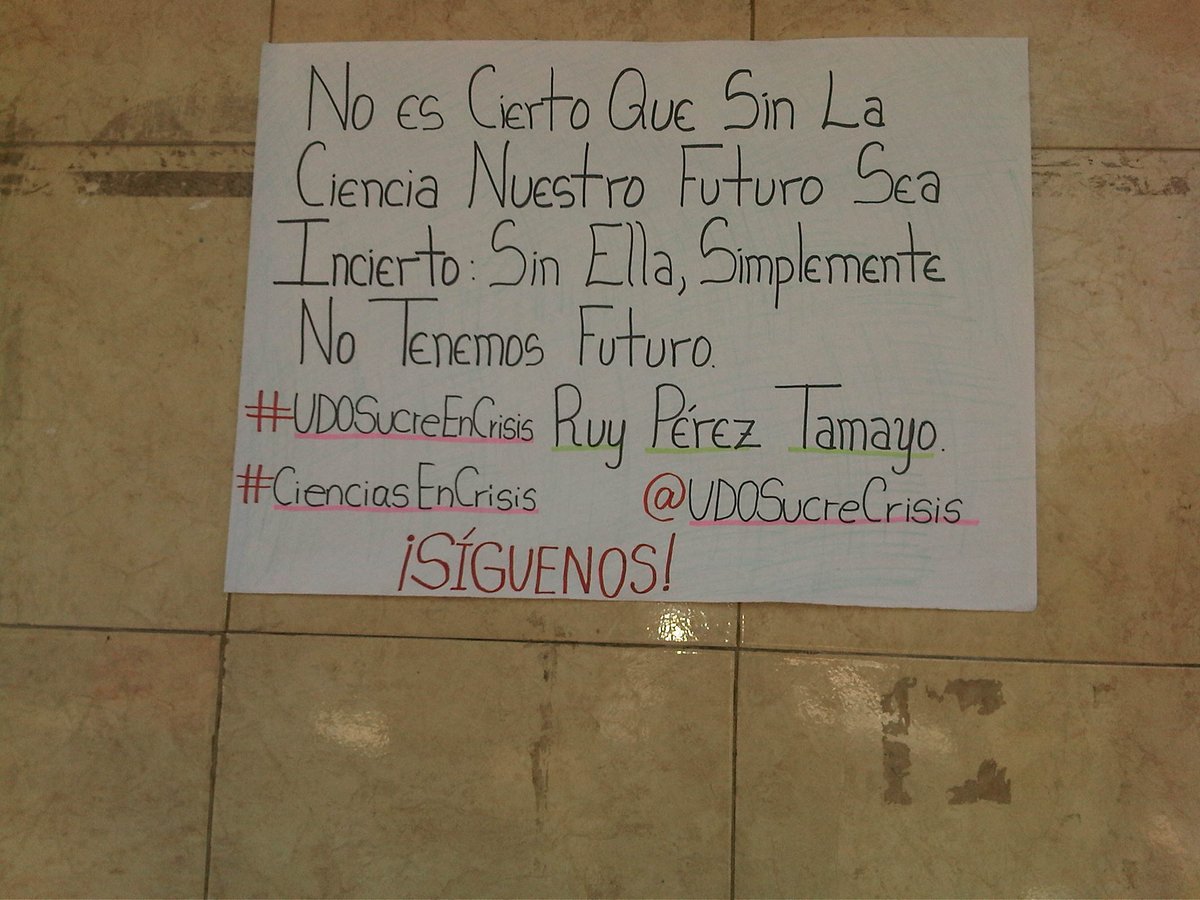 No es Cierto Que Sin La
Ciencia Nuestro Futuro Sea
Incierto: Sin Ella, Simplemente
No Tenemos Futuro.
#UDOSucreEnCrisis Ruy Pérez Tamayo.
#CienciasEnCrisis @UDOSucreCrisis
¡SÍGUENOS!